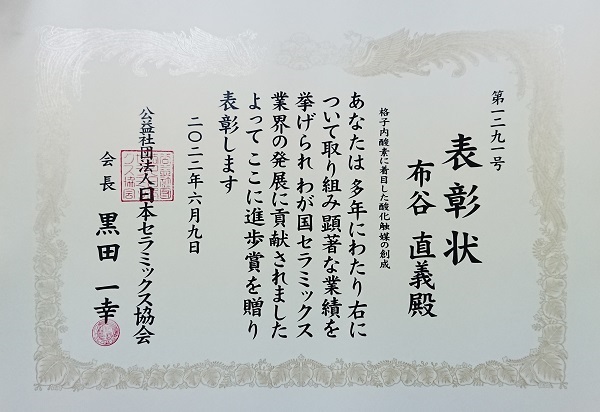 第一二九一号
表彰状
布谷 直義殿
格子内酸素に着目した酸化触媒の創成
あなたは 多年にわたり右に
ついて取り組み 顕著な業績を
挙げられ わが国セラミックス
業界の発展に貢献されました
よって ここに進歩賞を贈り
表彰します
二〇二二年六月九日
公益社団法人日本セラミックス協会
会長 黒田 一幸